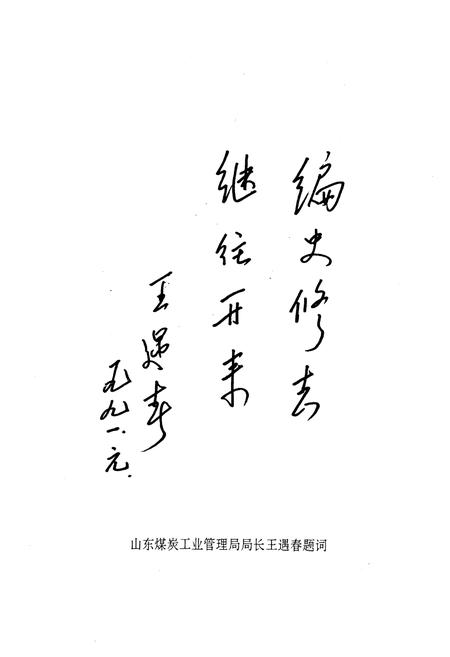 编史修志
继往开来
王遇春
九一.元.
山东煤炭工业管理局局长王遇春题词